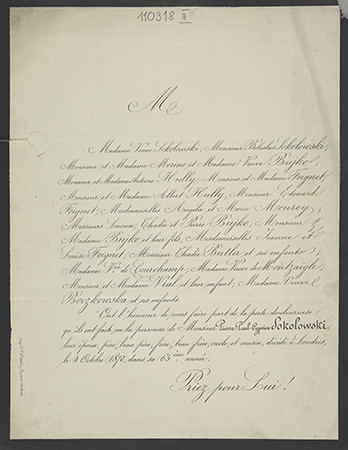 110318 II
M
Madame Veuve Sokolowski, Monsieur Bétislas Sokolowski,
Monsieur et Madame Merino et Madame Veuve Bryko,
Monsieur et Madame Antoine Hully, Monsieur et Madame Foignet,
Monsieur et Madame Albert Hully, Monsieur Edouard
Foignet, Mesdemoiselles Angela et Marie Mourey,
Messieurs Charles et Pierre Bryko, Monsieur
Madame Bryko et leur fils, Mesdemoiselles Jeanne et
Louise Foignet, Monsieur Charles Butler et ses enfants,
Madame Vve de Courchamp, Madame Veuve de Montzaigle,
Monsieur et Madame Vial et leur enfant, Madame Veuve
Boczkowska et ses enfants
Ont l'honneur de vous faire part de la perte douloureuse
qu'ils ont faite en la personne de Monsieur Pierre Paul Cyprien Sokolowski,
leur époux, père, beau père, frère, beau frère, oncle et cousin, décédé à Londres,
le 4 Octobre 1870, dans sa 63ème année.
Priez pour Lui!